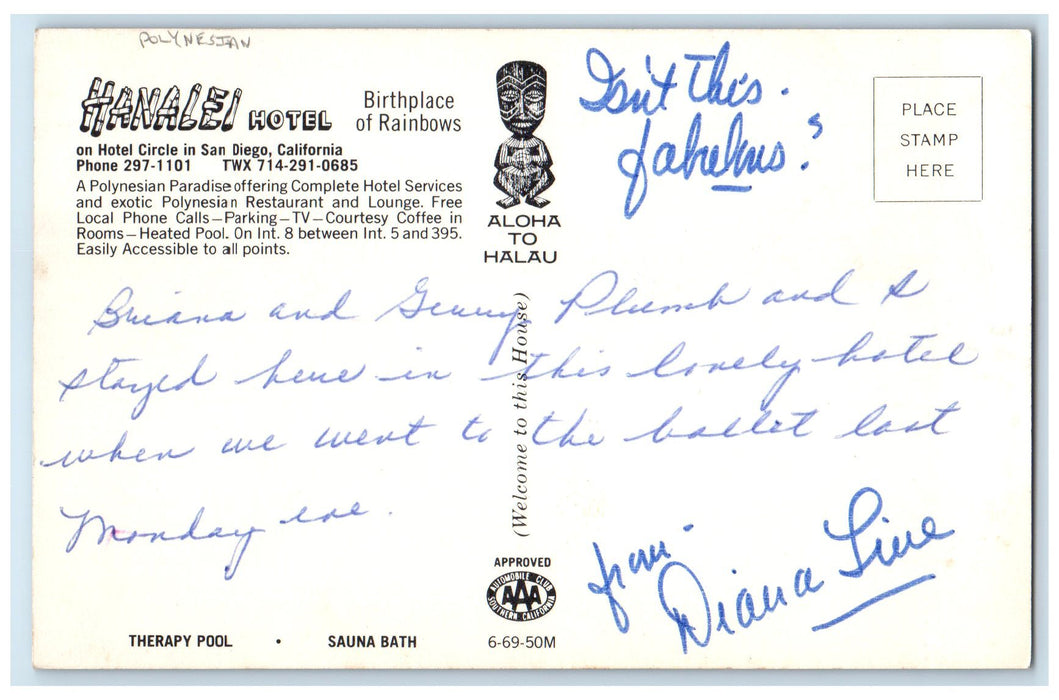 POLYNESIAN
HANALEI HOTEL
Birthplace
of Rainbows
on Hotel Circle in San Diego, California
Phone 297-1101 TWX 714-291-0685
A Polynesian Paradise offering Complete Hotel Services
and exotic Polynesian Restaurant and Lounge. Free
Local Phone Calls—Parking—TV—Courtesy Coffee in
Rooms—Heated Pool. On Int. 8 between Int. 5 and 395.
Easily Accessible to all points.
ALOHA
TO
HALAU
(Welcome to this House)
Isn't this
fabulous?
PLACE
STAMP
HERE
Briana and Plumb and I
stayed here in this lovely hotel
when we went to the ballet last
Monday eve.
from
Diana Line
APPROVED
AUTOMOBILE CLUB
AAA
SOUTHERN CALIFORNIA
THERAPY POOL • SAUNA BATH
6-69-50M